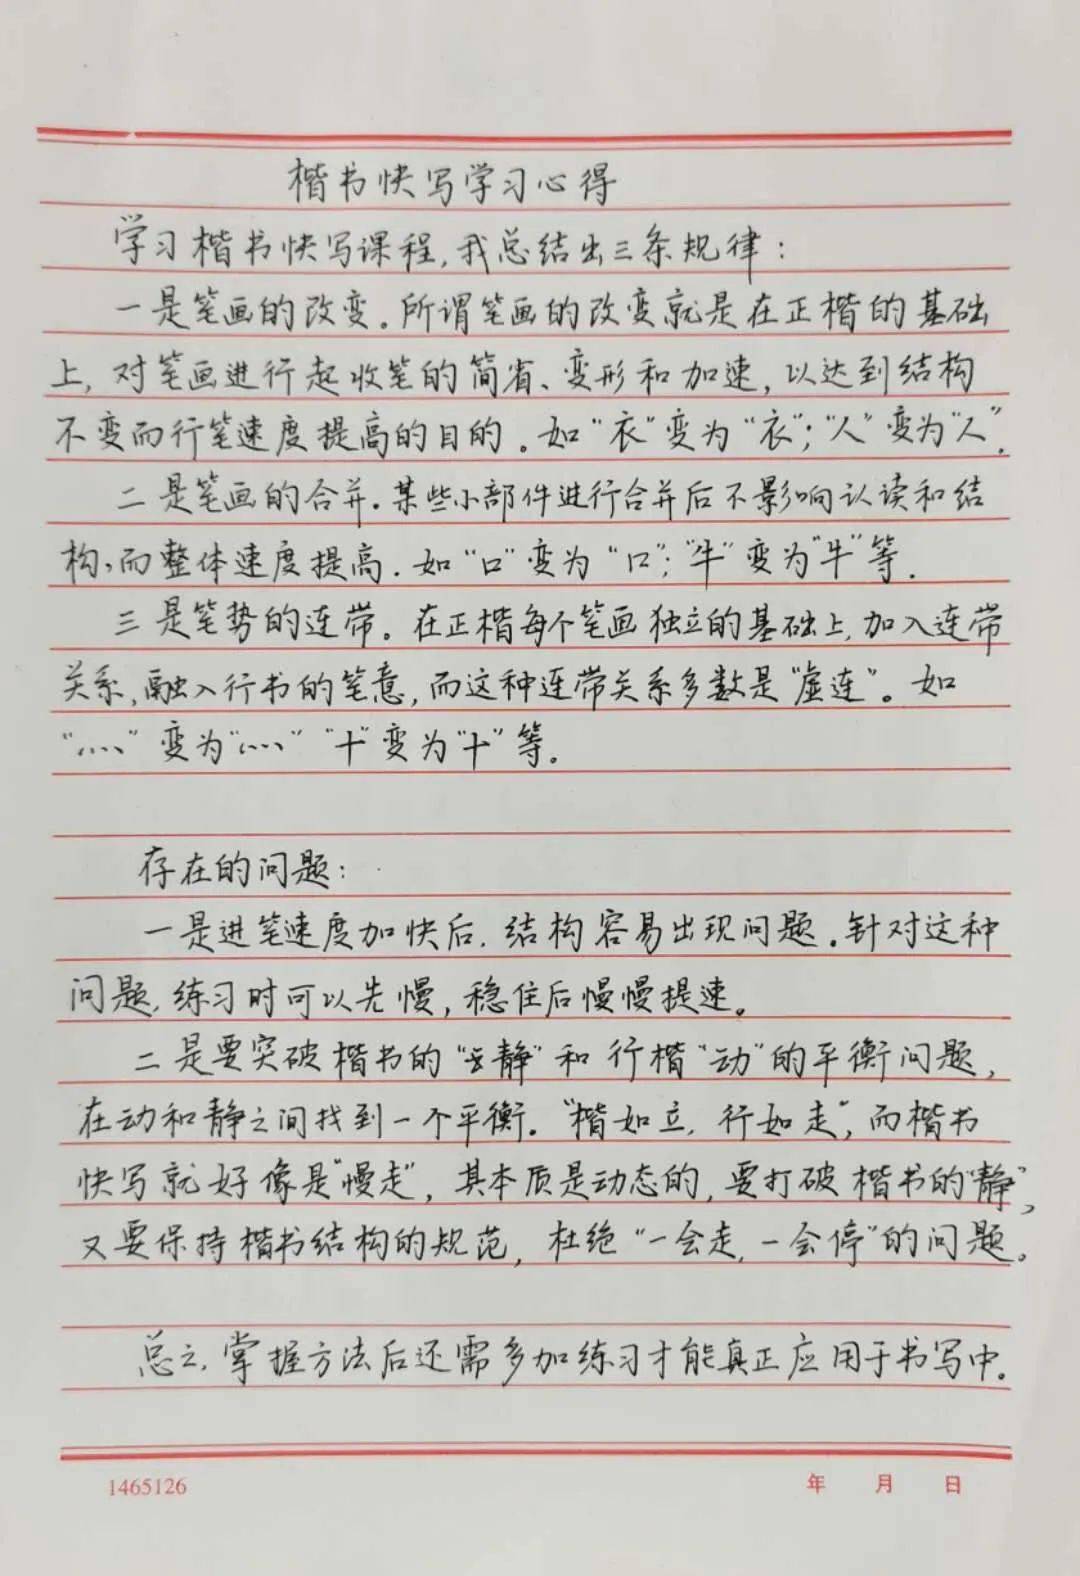 楷书快写学习心得
学习楷书快写课程,我总结出三条规律:
一是笔画的改变。所谓笔画的改变就是在正楷的基础
上,对笔画进行起收笔的简省、变形和加速,以达到结构
不变而行笔速度提高的目的。如“衣”变为“衣”;“人”变为“人”.
二是笔画的合并.某些小部件进行合并后不影响认读和结
构,而整体速度提高.如“口”变为“口”;“牛”变为“牛”等.
三是笔势的连带。在正楷每个笔画独立的基础上,加入连带
关系,融入行书的笔意,而这种连带关系多数是“虚连”。如
“灬”变为“灬”“十”变为“十”等.
存在的问题:
一是进笔速度加快后.结构容易出现问题.针对这种
问题,练习时可以先慢,稳住后慢慢提速。
二是要突破楷书的“静”和行楷“动”的平衡问题,
在动和静之间找到一个平衡.“楷如立,行如走”,而楷书
快写就好像是“慢走”,其本质是动态的,要打破楷书的“静”,
又要保持楷书结构的规范,杜绝“一会走,一会停”的问题。
总之,掌握方法后还需多加练习才能真正应用于书写中。
1465126
年 月 日